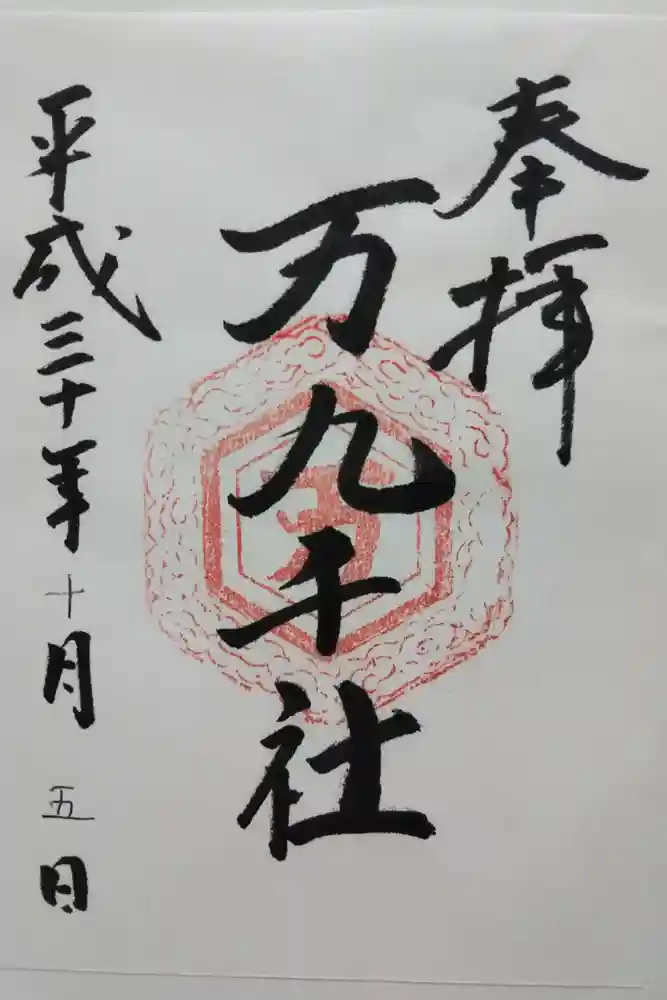 奉拝
万九千社
平成三十年十月五日